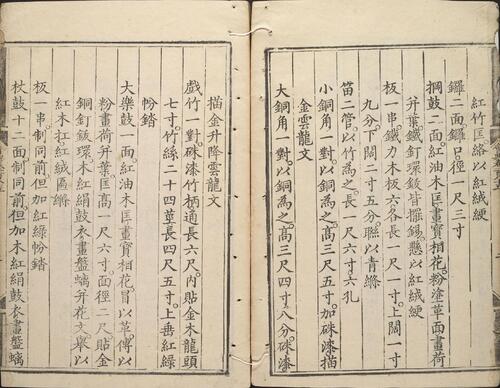 紅竹匡絡以紅絨䋁
鑼二面鑼口徑一尺三寸
搁鼓二面紅油木匡畫寳相花粉塗革面畫荷
并葉鐵釘環鈸皆擺錫懸以紅絨䋁
板一串鐵力木板六各長一尺一寸上闊一寸
九分下闊二寸五分聯以青縧
笛二管以竹為之長一尺六寸六孔
金雲龍文
小銅角一對以銅為之高三尺四寸五寸加硃漆描
大銅角一對以銅為之高三尺四寸八分硃漆
描金升降雲龍文
戲竹一對硃漆竹柄通長六尺内貼金木龍頭
七寸竹絲二十四莖長四尺五寸上垂紅緑
帉錔
大樂鼓一面紅油木匡畫寳相花冒以革傅以
粉畫荷并葉匡高一尺六寸面徑二尺貼金
銅釘鈸環木紅絹鼓衣畫盤螭并花文舉以
紅木扛紅絨匾縧
板一串制同前但加紅緑帉錔
杖鼓十二面制同前但加木紅絹鼓衣畫盤螭